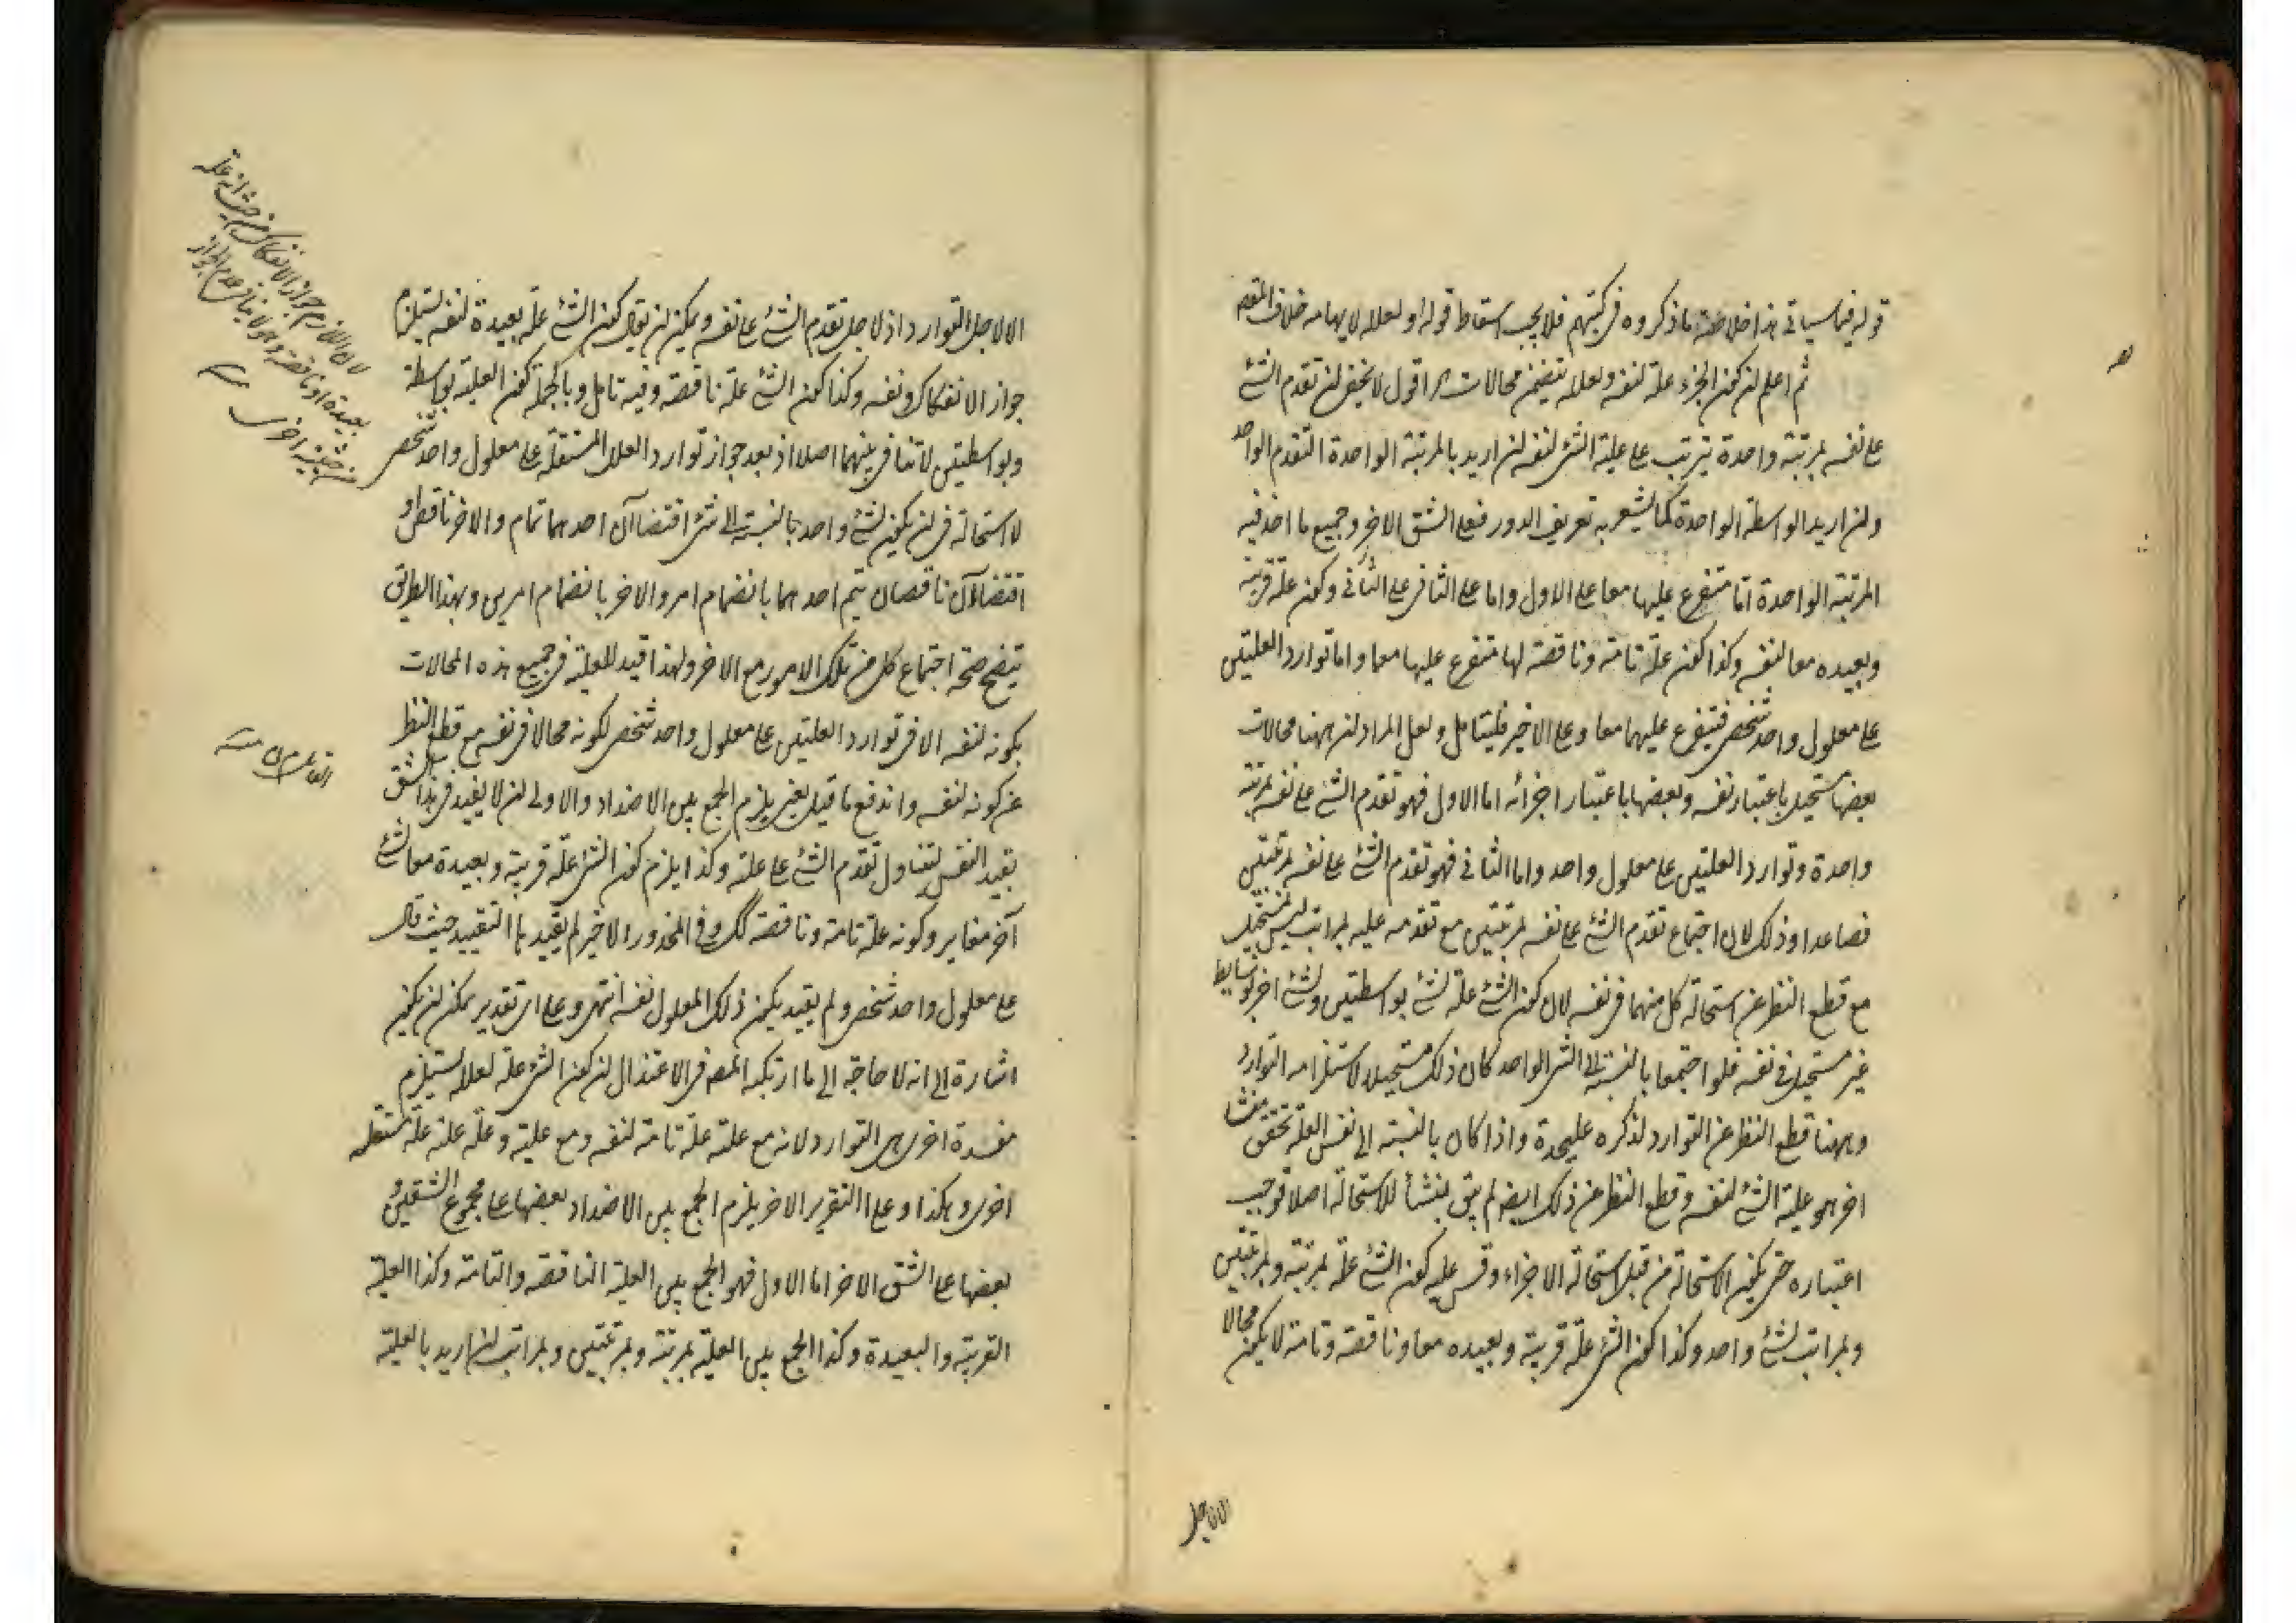 قوله فيما سيأتي هذا خلاصة ما ذكروه في كتبهم فلا يجب اسقاط قوله او لعلله لايهامه خلاف المقصد
ثم اعلم ان كون الجزء علة لنفسه ولعلله يتضمن محالات اقول لا يخفى ان تقدم الشئ
على نفسه بمرتبة واحدة يترتب على علية الشئ لنفسه ان اريد بالمرتبة الواحدة التقدم الواحد
وان اريد الواسطة الواحدة كما يشعر به تعريف الدور فعلى الشق الاخر وجميع ما اخذ فيه
المرتبة الواحدة اما متفرع عليها معا على الاول واما على الثاني فعلى الثاني وكون علة قريبة
وبعيده معا لنفسه وكذا كون علة تامة وناقصة لها متفرع عليها معا واما توارد العلتين
على معلول واحد شخصي فيتفرع عليهما معا وعلى الاخير فليتامل ولعل المراد ان ههنا محالات
بعضها مستحيل باعتبار نفسه وبعضها باعتبار اجزائه اما الاول فهو تقدم الشئ على نفسه بمرتبة
واحدة وتوارد العلتين على معلول واحد واما الثاني فهو تقدم الشئ على نفسه بمرتبتين
فصاعدا وذلك لان اجتماع تقدم الشئ على نفسه بمرتبتين مع تقدمه عليه بمراتب ليس بمستحيل
مع قطع النظر عن استحالة كل منهما في نفسه لان كون الشئ علة لشئ بواسطتين ولشئ اخر بوسايط
غير مستحيل في نفسه فلو اجتمعا بالنسبة الى الشئ الواحد كان ذلك مستحيلا لاستلزامه التوارد
وههنا قطع النظر عن التوارد لذكره عليحدة واذا كان بالنسبة الى نفس العلة تحقق منشأ
اخر هو علية الشئ لنفسه وقطع النظر عن ذلك ايضا لم يبق منشأ للاستحالة اصلا فوجب
اعتباره حتى يكون الاستحالة من قبل استحالة الاجزاء وقس عليه كون الشئ علة بمرتبة وبمرتبتين
وبمراتب لشئ واحد وكذا كون الشئ علة قريبة وبعيده معا وناقصة وتامة لا يكون محالا
الا لاجل
الا لاجل التوارد اذ لاجل تقدم الشئ على نفسه ويمكن ان يقال كون الشئ علة بعيدة لنفسه يستلزم
جواز الانفكاك عن نفسه وكذا كون الشئ علة ناقصة وفيه تامل وبالجملة كون العلية بواسطة
وبواسطتين لا تنافي بينهما اصلا اذ بعد جواز توارد العلل المستقلة على معلول واحد شخصي
لا استحالة في ان يكون لشئ واحد بالنسبة الى شئ اقتضاآن احدهما تام والاخر ناقص او
اقتضاآن ناقصان يتم احدهما بانضمام امر والاخر بانضمام امرين وبهذا الطريق
يتضح صحة اجتماع كل من تلك الامور مع الاخر ولهذا قيد للعلية في جميع هذه المحالات
بكونه لنفسه الا في توارد العلتين على معلول واحد شخصي لكونه محالا في نفسه مع قطع النظر
عن كونه لنفسه واندفع ما قيل يعني يلزم الجمع بين الاضداد والاولى ان لا يقيد في هذا الشق
بقيد النفس لتناول تقدم الشئ على علته وكذا يلزم كون الشئ علة قريبة وبعيدة معا لشئ
آخر مغاير وكونه علة تامة وناقصة كك وفي المحذور الاخير لم يقيد بالتقييد حيث قال
على معلول واحد شخصي ولم يقيد بكون ذلك المعلول نفسه انتهى وعلى اي تقدير يمكن ان يكون
اشارة الى انه لا حاجة الى ما ارتكبه المصـ في الاعتذال ان كون الشئ علة لعلله يستلزم
مفسدة اخرى هي التوارد لانه مع علته علة تامة لنفسه ومع عليته وعلة علته علة مستقلة
اخرى وهكذا وعلى التقرير الاخر يلزم الجمع بين الاضداد بعضها على مجموع الشقين و
بعضها على الشق الاخر اما الاول فهو الجمع بين العلية الناقصة والتامة وكذا العلية
القريبة والبعيدة وكذا الجمع بين العلية بمرتبة وبمرتبتين وبمراتب ان اريد بالعلية
لان اللازم جواز الانفكاك من حيث انه علة
بعيدة او ناقصة وهو لا ينافي عدم الجواز
من حيثية اخرى